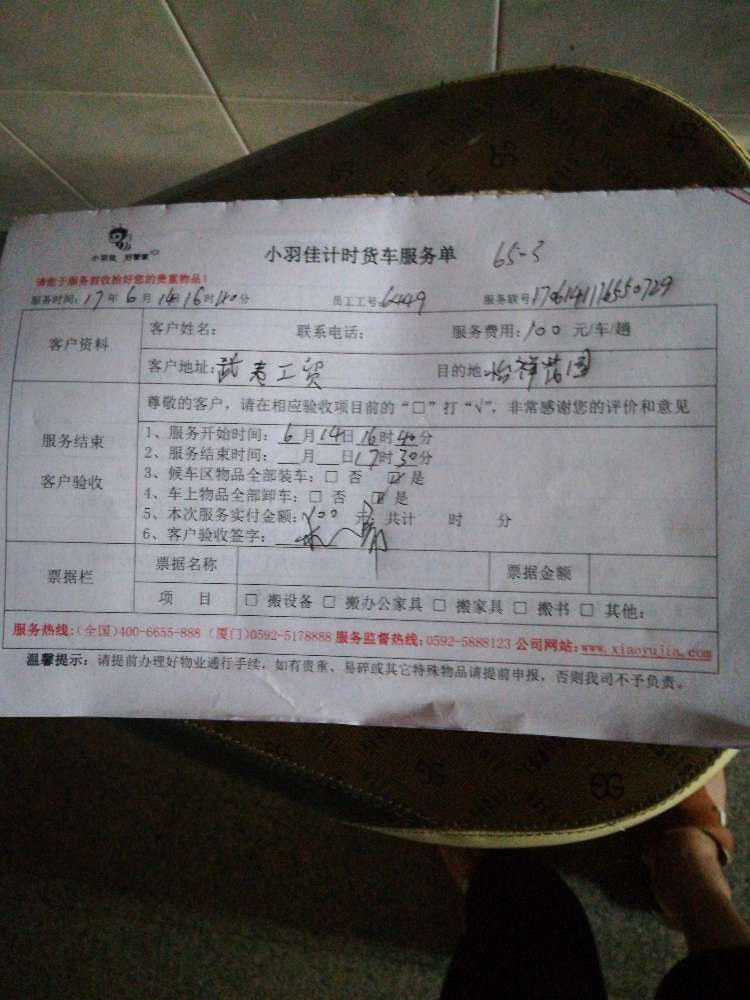 小羽佳 好管家
小羽佳计时货车服务单 65-3
请您于服务前收拾好您的贵重物品！
服务时间：17年6月14日16时40分 员工工号：6449 服务联号170614116550729
客户资料
客户姓名： 联系电话： 服务费用：100 元/车/趟
客户地址： 工贸 目的地：怡祥花园
尊敬的客户，请在相应验收项目前的“□”打“√”，非常感谢您的评价和意见
服务结束
客户验收
1、服务开始时间：6月14日16时40分
2、服务结束时间：__月__日17时30分
3、候车区物品全部装车：□ 否 ☑ 是
4、车上物品全部卸车：□ 否 ☑ 是
5、本次服务实付金额：100 元；共计 时 分
6、客户验收签字：
票据栏
票据名称 票据金额
项 目 □ 搬设备 □ 搬办公家具 □ 搬家具 □ 搬书 □ 其他：
服务热线：(全国)400-6655-888 (厦门)0592-5178888 服务监督热线：0592-5888123 公司网站：www.xiaoyujia.com
温馨提示：请提前办理好物业通行手续，如有贵重、易碎或其它特殊物品请提前申报，否则我司不予负责。